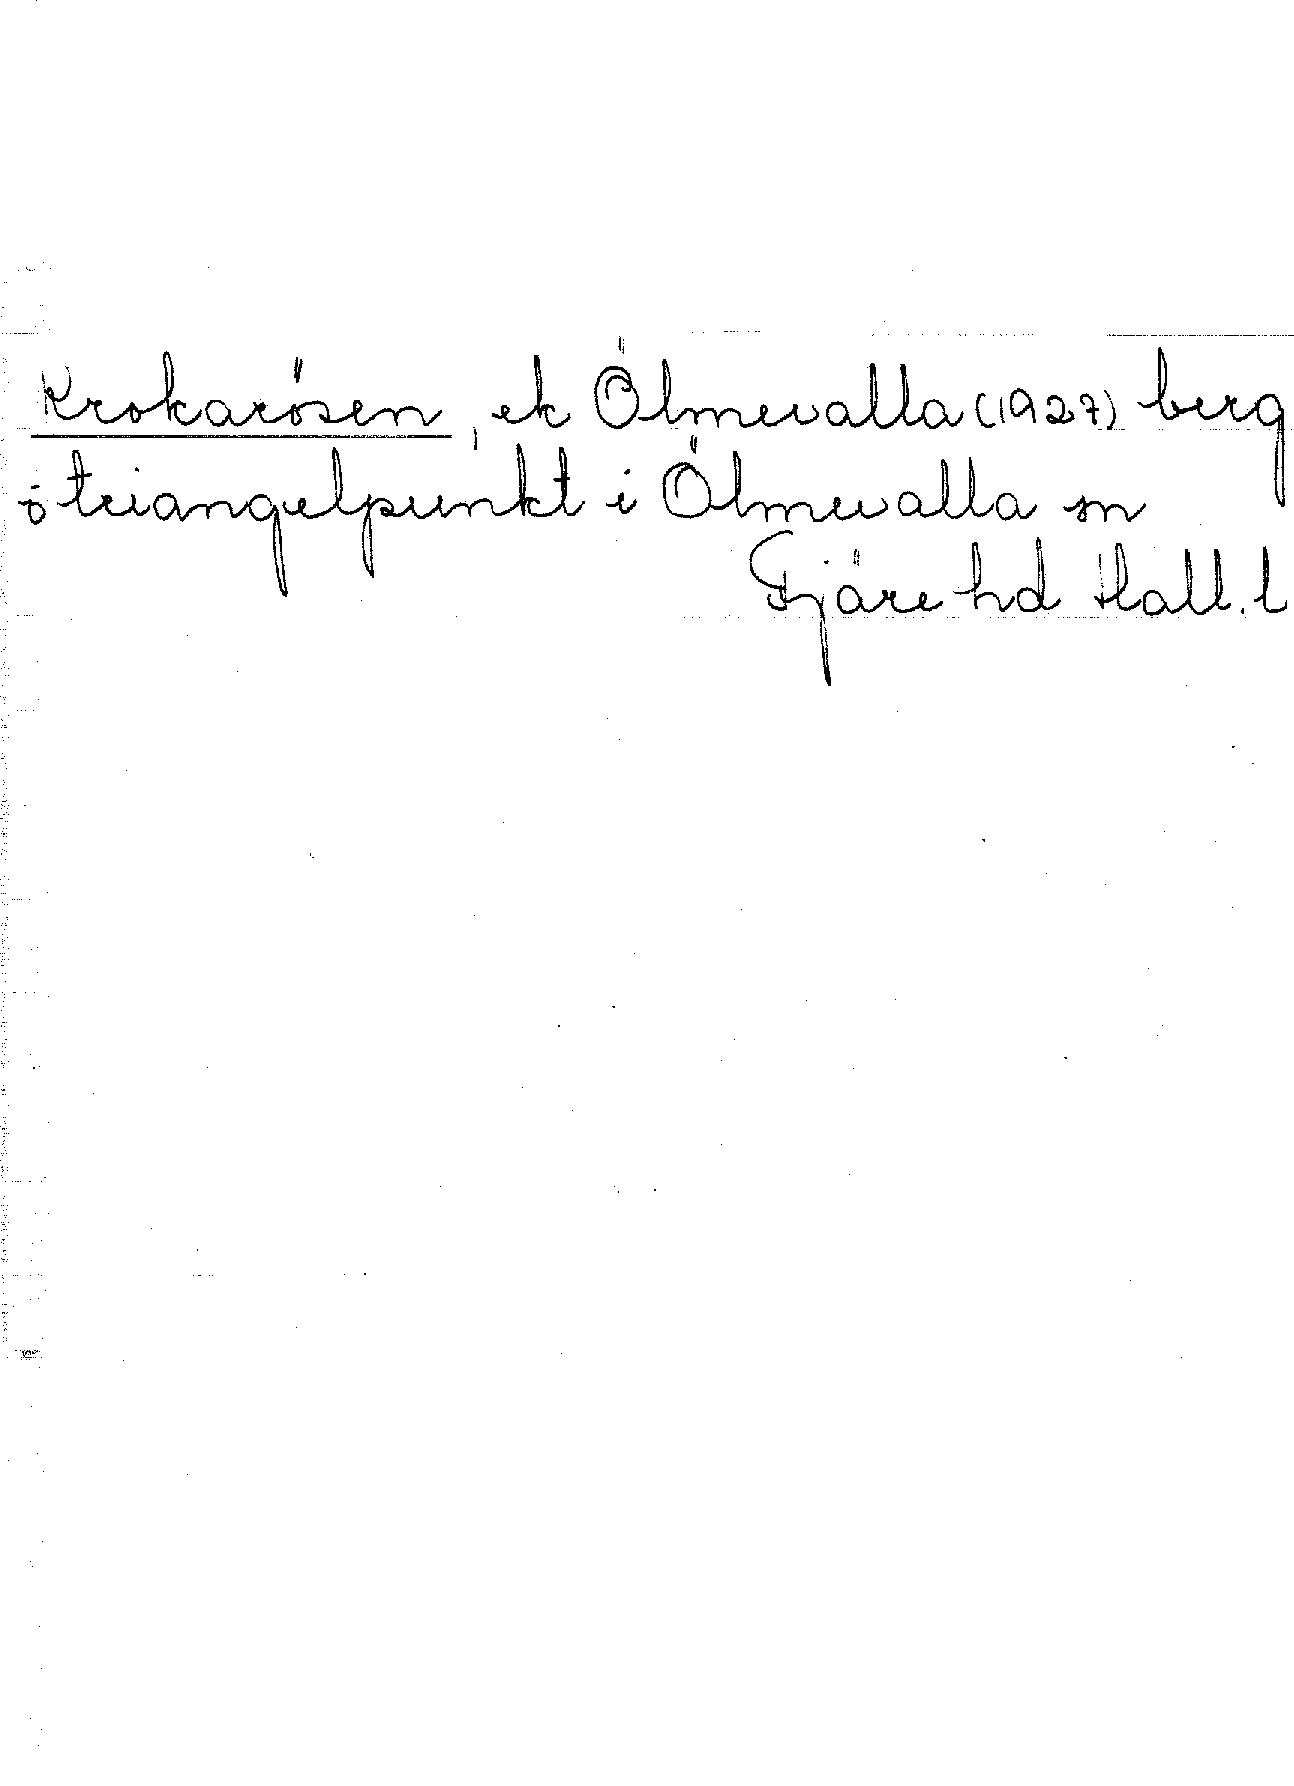 Krokarösen, ek Ölmevalla (1927) berg
o triangelpunkt i Ölmevalla sn
Fjäre hd Hall. l